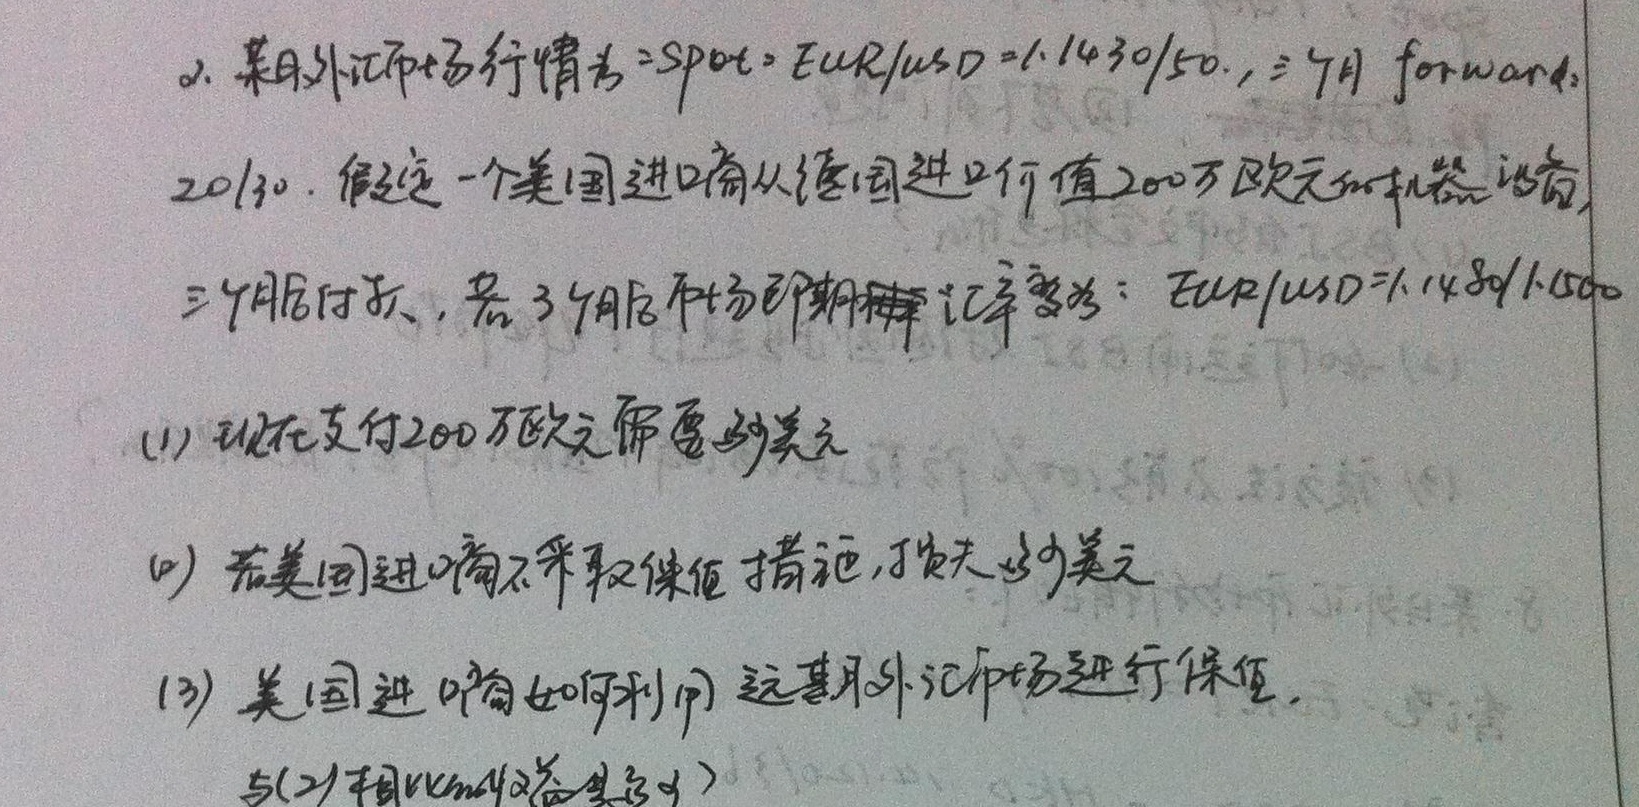 2. 某日外汇市场行情为:Spot:EUR/USD=1.1430/50.,三个月 forward:
20/30.假定一个美国进口商从德国进口价值200万欧元的机器设备,
三个月后付款,若3个月后市场即期汇率变为:EUR/USD=1.1480/1.1500
(1) 现在支付200万欧元需要多少美元
(2) 若美国进口商不采取保值措施,损失多少美元
(3) 美国进口商如何利用远期外汇市场进行保值.
与(2)相比